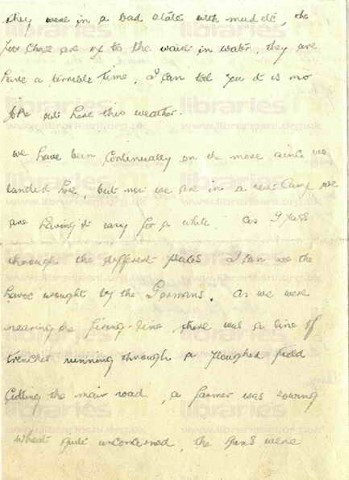 they were in a bad state with mud etc, the
poor chaps are up to the waist in water, they are
have a terrible time, I can tell you it is no
joke out here this weather.
we have been continually on the move since we
landed here, but now we are in a rest camp we
are having it easy for a while. as I pass
through the different places I can see the
havoc wrought by the Germans. As we were
nearing the firing-line, there was a line of
trenches running through a ploughed field
cutting the main road, a farmer was sowing
wheat quite unconcerned, the guns were